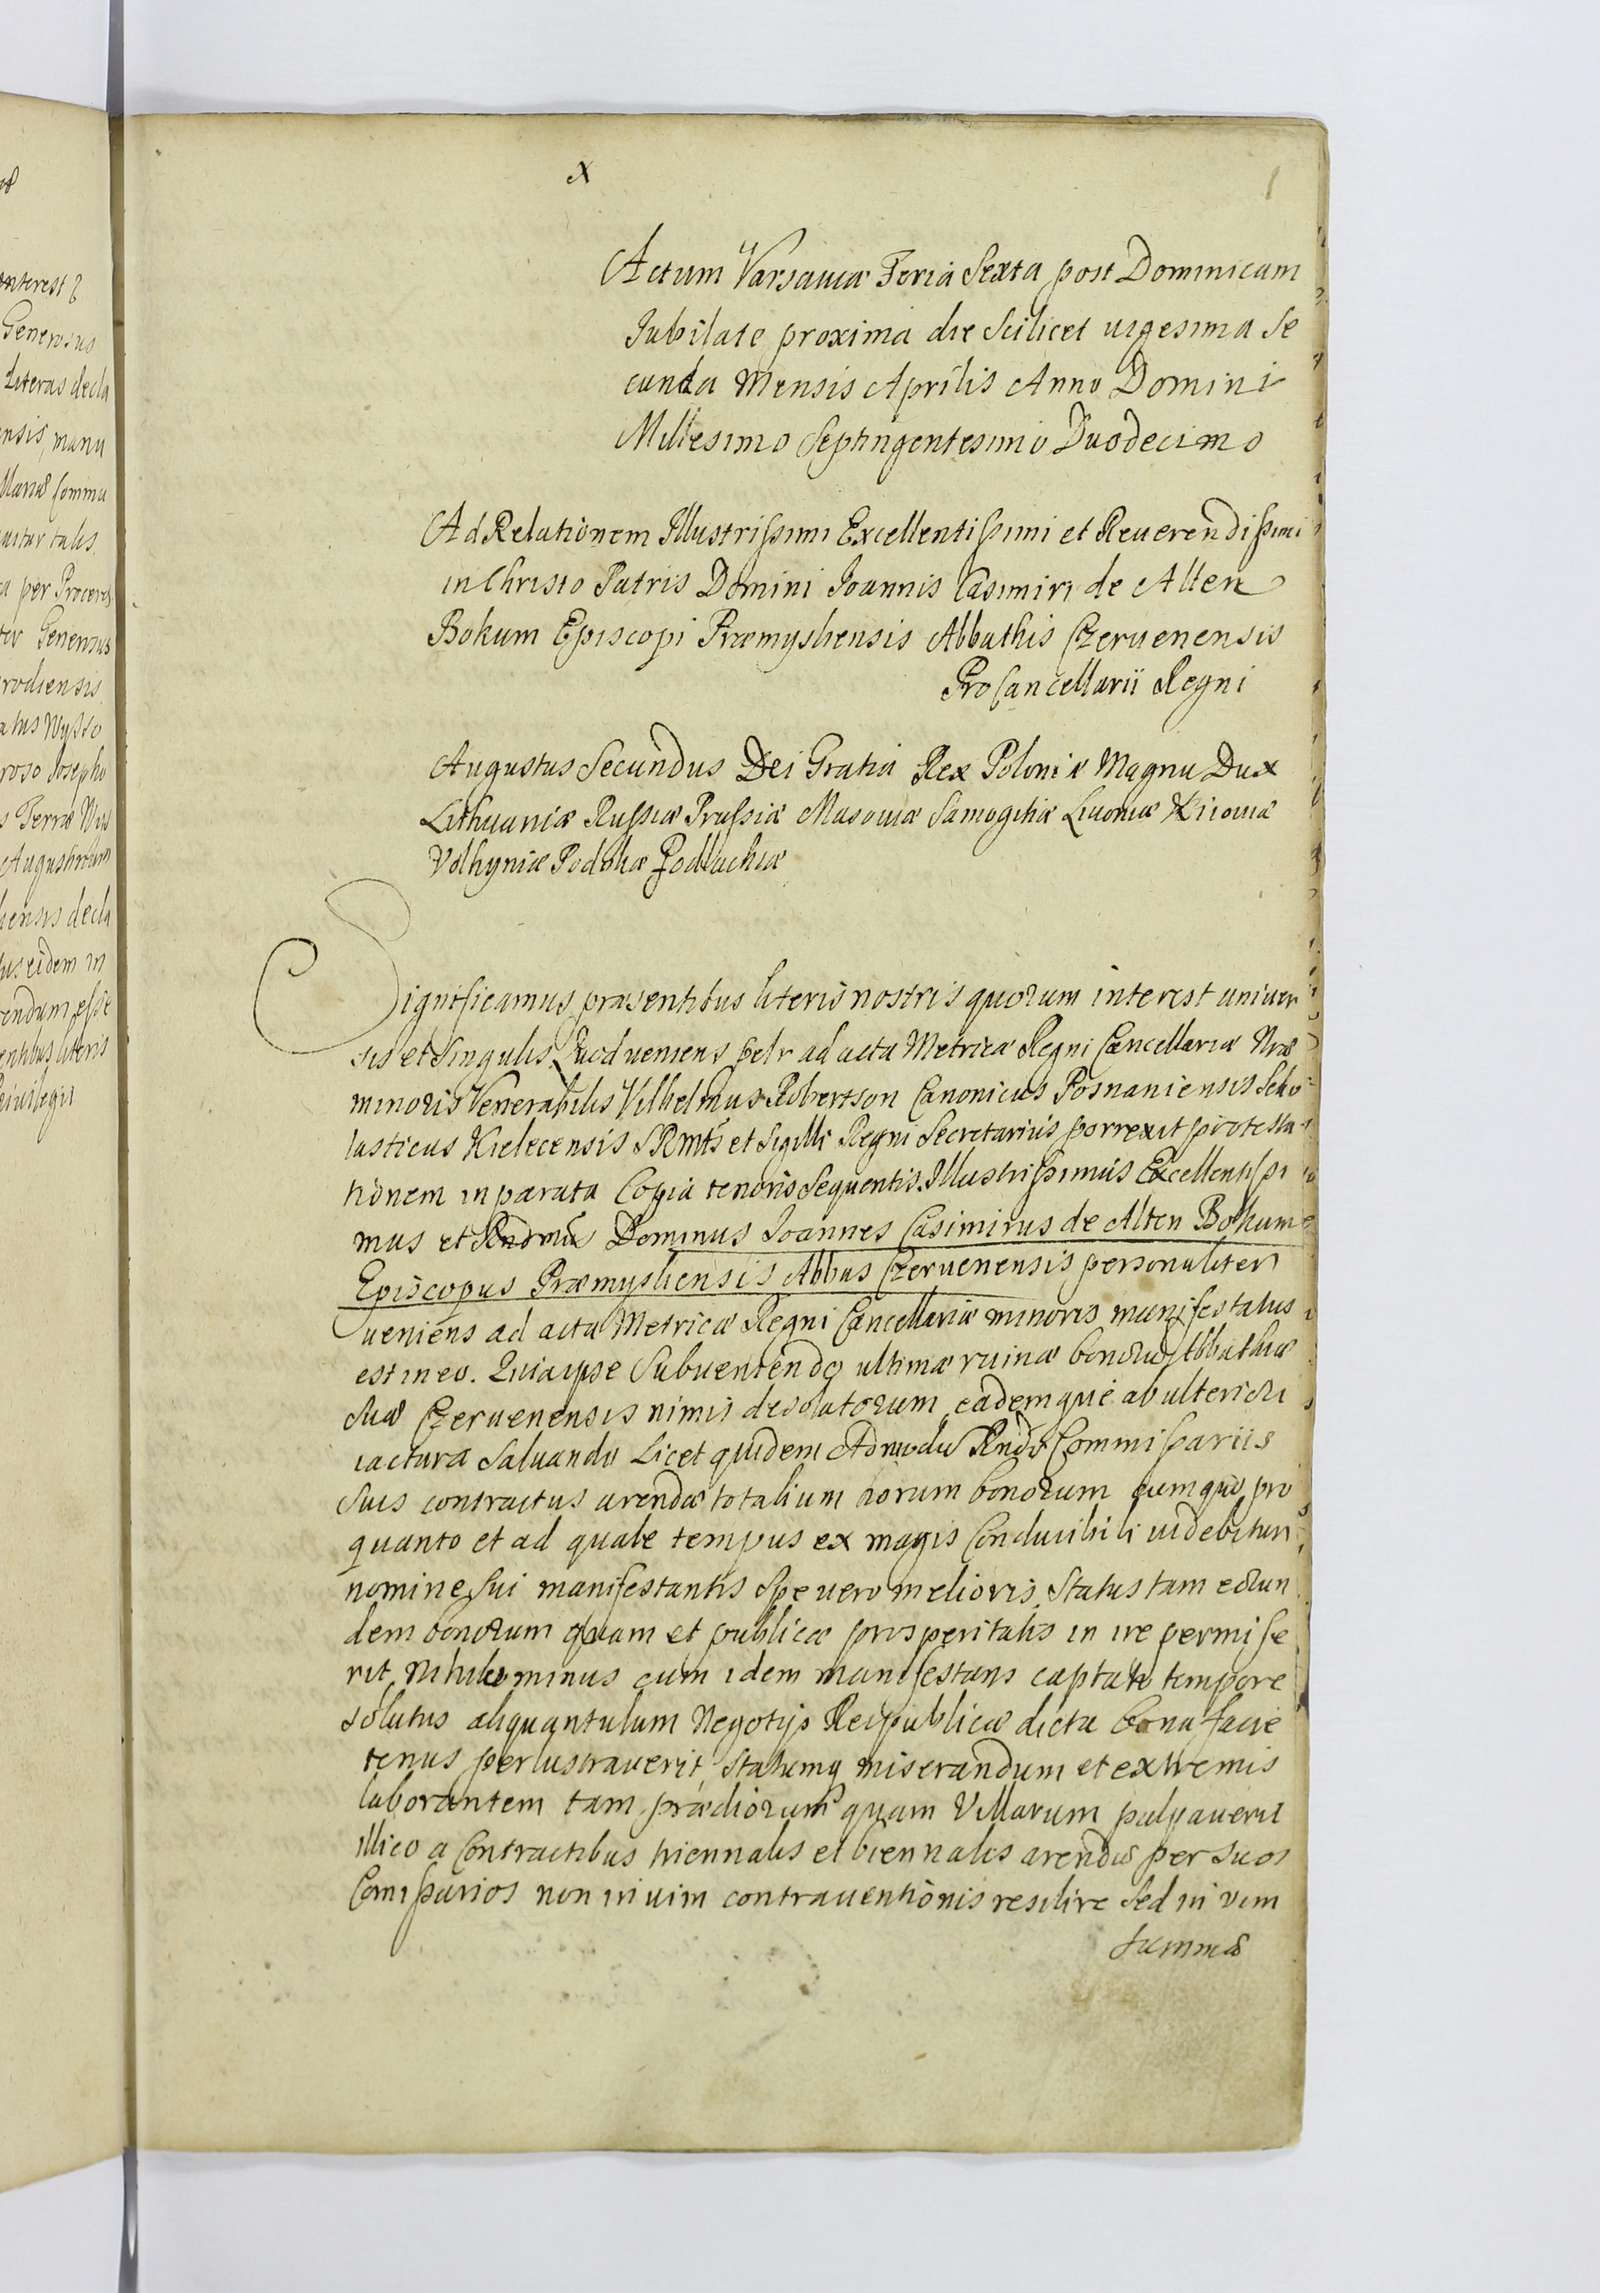 x
Actum Varsaviæ Feria Sexta post Dominicam
Jubilate proxima die Scilicet uigesima Se
cunda Mensis Aprilis Anno Domini
Millesimo Septingentesimo Duodecimo
Ad Relationem Illustrissimi Excellentissimi et Reuerendissimi
in Christo Patris Domini Joannis Casimiri de Alten
Bokum Episcopi Præmysliensis Abbathis Czeruenensis
ProCancellarii Regni
Augustus Secundus Dei Gratia Rex Poloniæ Magnu Dux
Lithuaniæ Russiæ Prussiæ Masouiæ Samogitiæ Liuoniæ Kiiouiæ
Volhyniæ Podoliæ Podlachiæ
Significamus præsentibus literis nostris quorum interest uniuer
sis et Singulis Quod ueniens petr ad acta Metricæ Regni Cancellariæ Nræ
minoris Venerabilis Vilhelmus Robertson Canonicus Posnaniensis Scho
lasticus Kielecensis SRMtis et Sigilli Regni Secretarius porrexit protesta
tionem in parata Copia tenoris Sequentis. Illustrissimus Excellentissi
mus et Rndmus Dominus Joannes Casimirus de Alten Bokum
Episcopus Præmysliensis Abbas Czeruenensis personaliter
ueniens ad acta Metricæ Regni Cancellariæ minoris manifestatus
est in eo. Quia ipse Subueniendo ultimæ ruinæ bonorũ Abbathiæ
Suæ Czeruenensis nimis desolatorum, eademque ab ulteriori
iactura Saluando Licet quidem Admodũ Rndis Commissariis
Suis contractus arendæ totalium horum bonorum cumquo pro
quanto et ad quale tempus ex magis Conducibili uidebitur
nomine Sui manifestantis Spe uero melioris Status tam eorun
dem bonorum quam et publicæ prosperitatis in ire permise
rit Nihilominus cum idem manifestans captato tempore
solutus aliquantulum Negotijs Reipublicæ dicta bona facie
tenus perlustrauerit, Statumq miserandum et extremis
laborantem tam prædiorum quam Villarum palpauerit
illico a Contractibus triennalis et biennalis arendæ per Suos
Comissarios non in uim contrauentionis resilire Sed in vim
Summæ